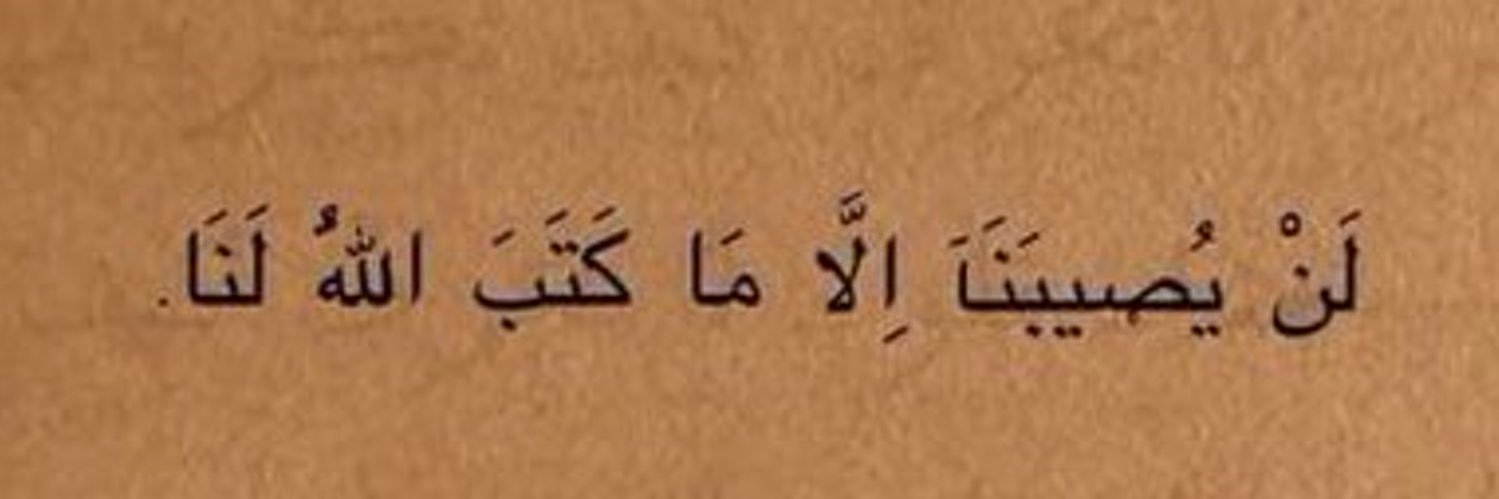 لَنْ يُصيبَنََا اِلَّا مَا كَتَبَ اللهُ لَنَا.